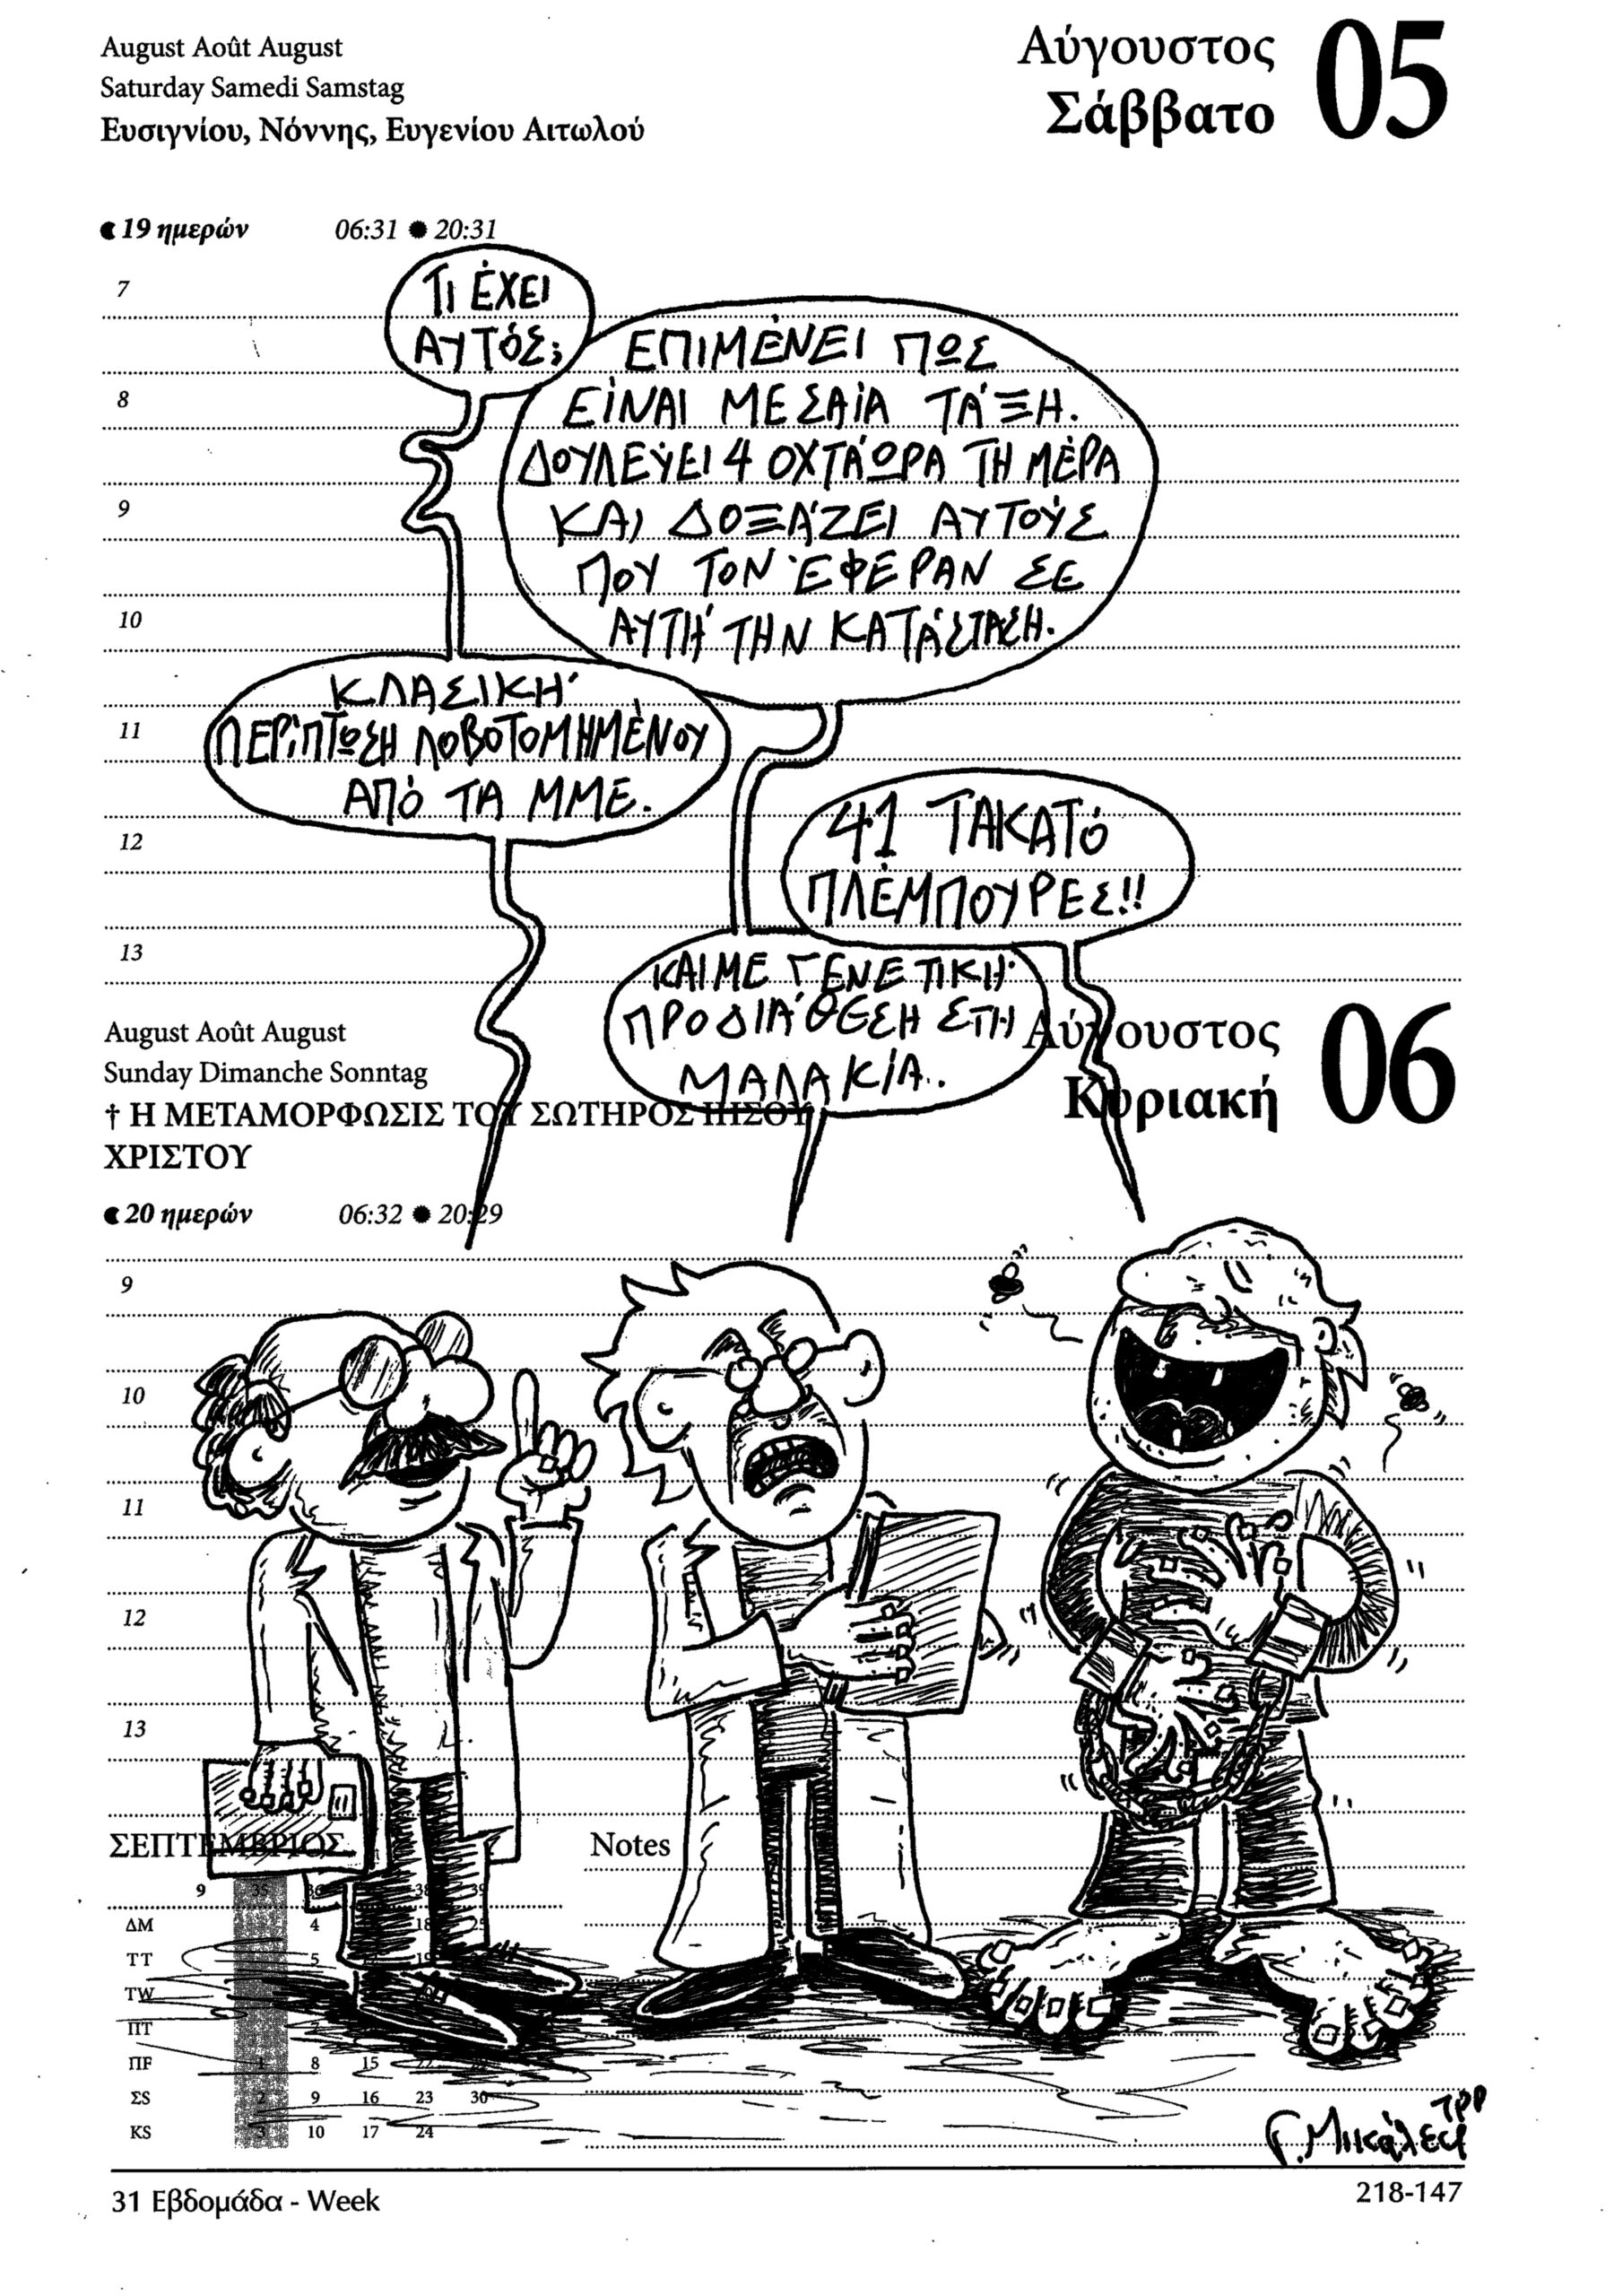 August Août August
Saturday Samedi Samstag
Ευσιγνίου, Νόννης, Ευγενίου Αιτωλού
Αύγουστος
Σάββατο
05
19 ημερών 06:31 20:31
7
8
9
10
11
12
13
ΤΙ ΈΧΕΙ
ΑΥΤΌΣ;
ΕΠΙΜΈΝΕΙ ΠΩΣ
ΕΊΝΑΙ ΜΕΣΑΊΑ ΤΆΞΗ.
ΔΟΥΛΕΎΕΙ 4 ΟΧΤΆΩΡΑ ΤΗ ΜΈΡΑ
ΚΑΙ ΔΟΞΆΖΕΙ ΑΥΤΟΎΣ
ΠΟΥ ΤΟΝ ΈΦΕΡΑΝ ΣΕ
ΑΥΤΉ ΤΗΝ ΚΑΤΆΣΤΑΣΗ.
ΚΛΑΣΙΚΉ
ΠΕΡΊΠΤΩΣΗ ΛΟΒΟΤΟΜΗΜΈΝΟΥ
ΑΠΌ ΤΑ ΜΜΕ.
41 ΤΑΚΑΤΌ
ΠΛΈΜΠΟΥΡΕΣ!!
ΚΑΙ ΜΕ ΓΕΝΕΤΙΚΉ
ΠΡΟΔΙΆΘΕΣΗ ΣΤΗ
ΜΑΛΑΚΊΑ..
August Août August
Sunday Dimanche Sonntag
† Η ΜΕΤΑΜΟΡΦΩΣΙΣ ΤΟΥ ΣΩΤΗΡΟΣ ΙΗΣΟΥ
ΧΡΙΣΤΟΥ
Αύγουστος
Κυριακή
06
20 ημερών 06:32 20:29
9
10
11
12
13
ΣΕΠΤΕΜΒΡΙΟΣ
Notes
9 35 36 38 39
ΔM 4 18 25
ΤT 5 19
ΤW
ΠT
ΠF 1 8 15 22
ΣS 2 9 16 23 30
KS 3 10 17 24
ΤΡΡ
Γ. Μικάλεφ
31 Εβδομάδα - Week
218-147